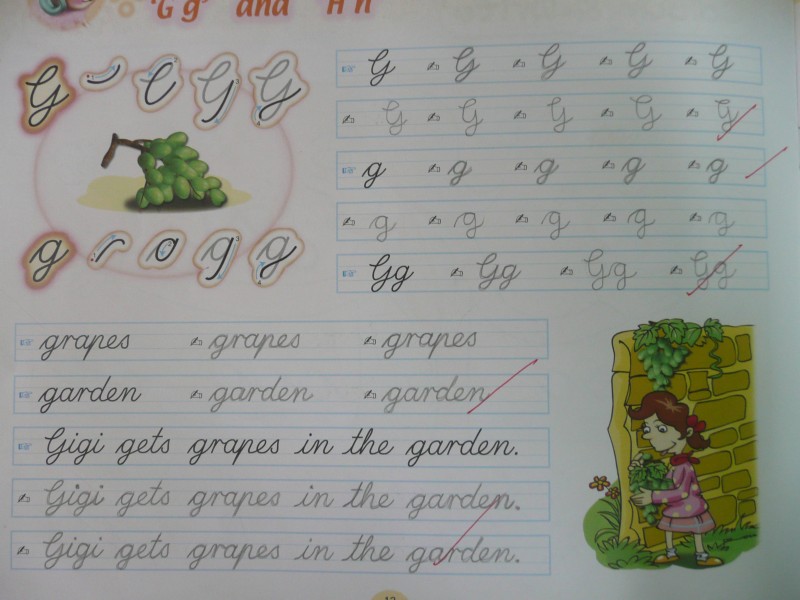 'G g' and 'H h'
G G G G G
G G G G G
G G G G G
g g g g g
g g g g g
g g g g g
Gg Gg Gg Gg
grapes grapes grapes
garden garden garden
Gigi gets grapes in the garden.
Gigi gets grapes in the garden.
Gigi gets grapes in the garden.